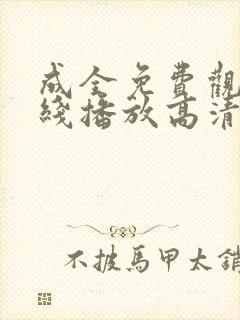 成全免費觀
綫播放高清
不披馬甲太銷